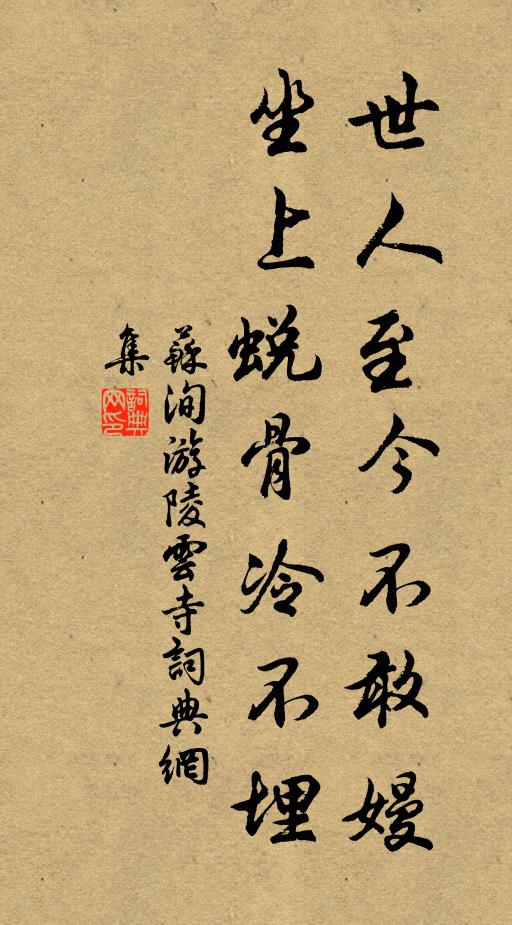 世人至今不敢嫚
坐上蛻骨冷不埋
蘇洵游陵雲寺詞典網
集
詞典網印